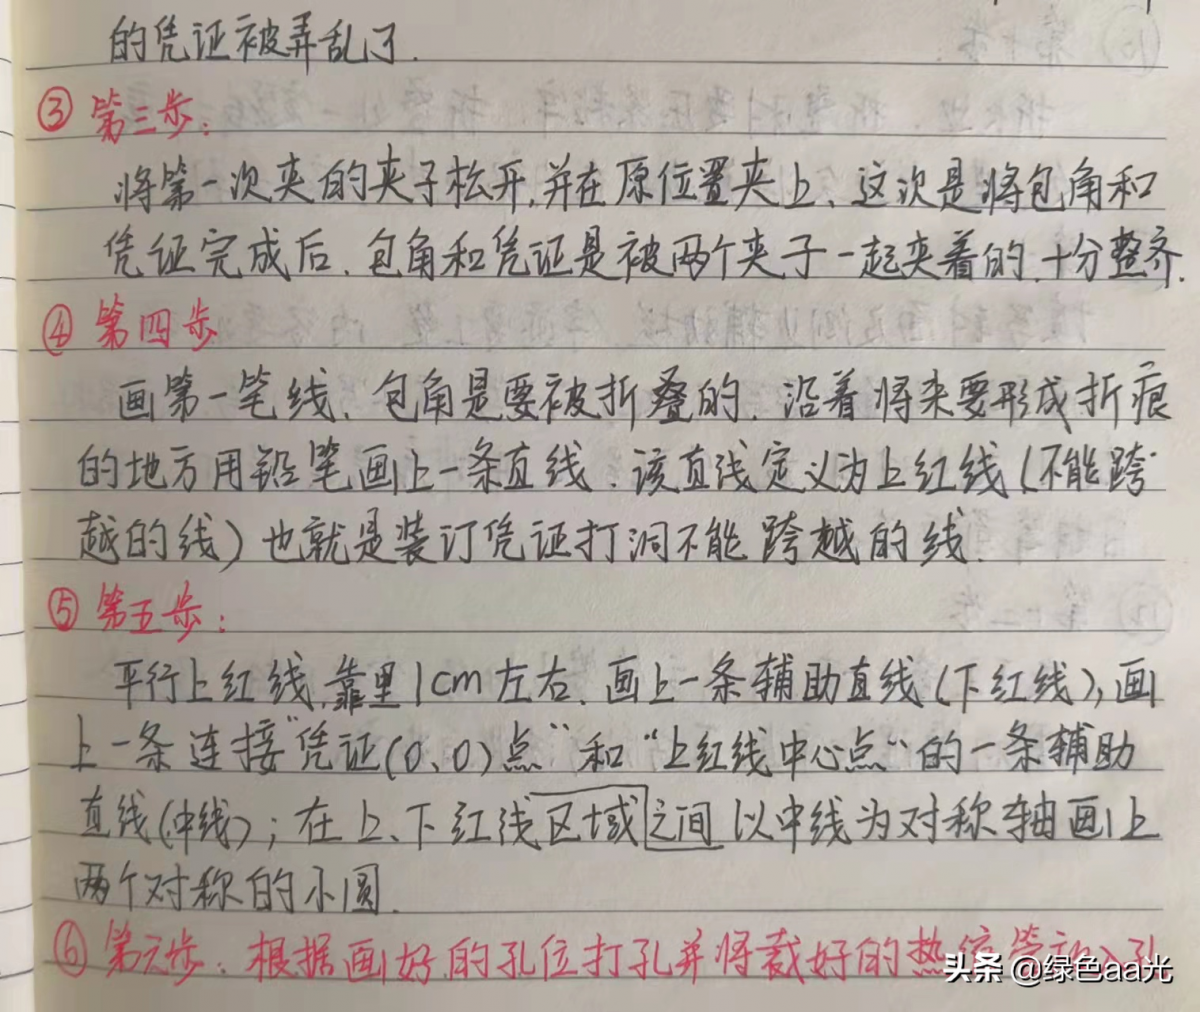 的凭证被弄乱了.
③ 第三步:
将第一次夹的夹子松开,并在原位置夹上、这次是将包角和
凭证完成后、包角和凭证是被两个夹子一起夹着的,十分整齐.
④ 第四步
画第一笔线、包角是要被折叠的、沿着将来要形成折痕
的地方用铅笔画上一条直线、该直线定义为上红线(不能跨
越的线)也就是装订凭证打洞不能跨越的线.
⑤ 第五步:
平行上红线,靠里1cm左右、画上一条辅助直线(下红线),画
上一条连接"凭证(0、0)点"和"上红线中心点"的一条辅助
直线(中线);在上、下红线区域之间以中线为对称轴画上
两个对称的小圆.
⑥ 第六步:根据画好的孔位打孔并将裁好的热
头条 @绿色aa光